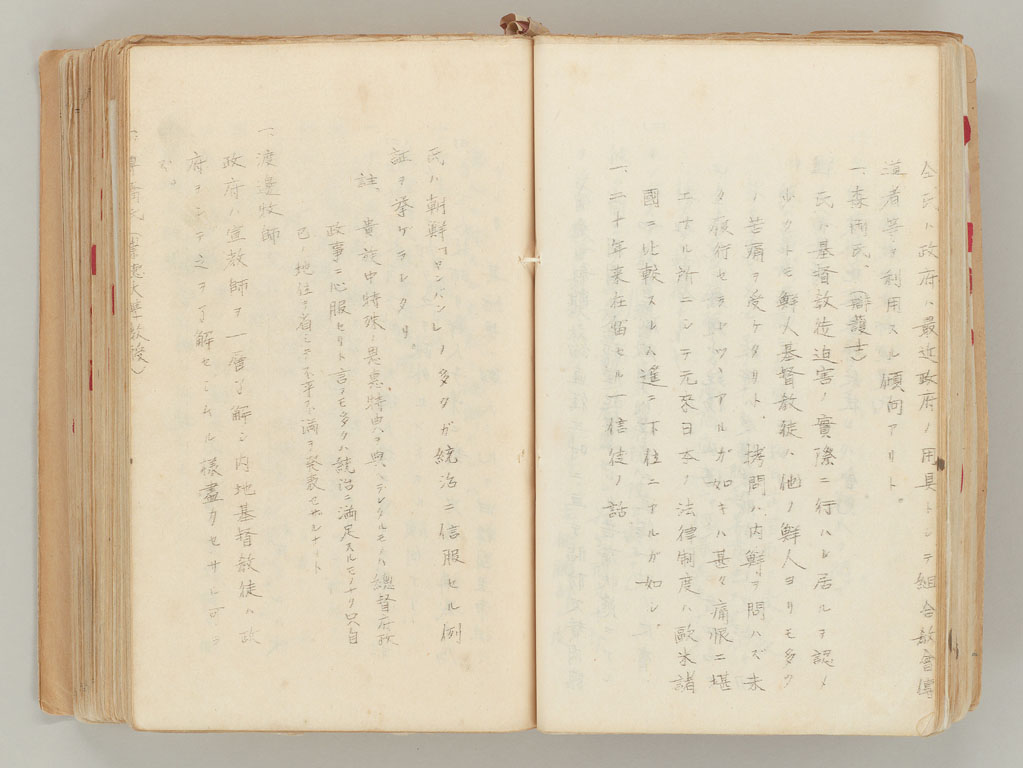 全氏ハ政府ハ最近政府ノ用具トシテ組合教會傳
道者等ヲ利用スル傾向アリト。
一、李両民、(辯護士)
氏ハ基督教徒迫害ノ實際ニ行ハレ居ルヲ認メ
少クトモ鮮人基督教徒ハ他ノ鮮人ヨリモ多ク
ノ苦痛ヲ受ケタリト、拷問ハ内鮮ヲ問ハズ未
タ履行セラレツヽアルガ如キハ甚タ痛恨ニ堪
エザル所ニシテ元来日本ノ法律制度ハ歐米諸
國ニ比較スレハ遙ニ下位ニオルガ如シ、
一、二十年来在留セル一信徒ノ話
氏ハ朝鮮ノ多クガ統治ニ信服セル例
証ヲ挙ゲラレタリ。
註、貴族中特殊ノ恩恵特典ヲ與ヘラレタルモノハ總督府政
政事ニ心服セリト言フモ多クハ統治ニ満足スルモノナリ只自
己ノ地位ヲ省ミテ不平不満ヲ発表セサルナリト
一、渡邊牧師
政府ハ宣教師ヲ一層了解シ内地基督教徒ハ政
府ヲシテ之ヲ了解セシムル様盡力セサル可ラ
ズ。